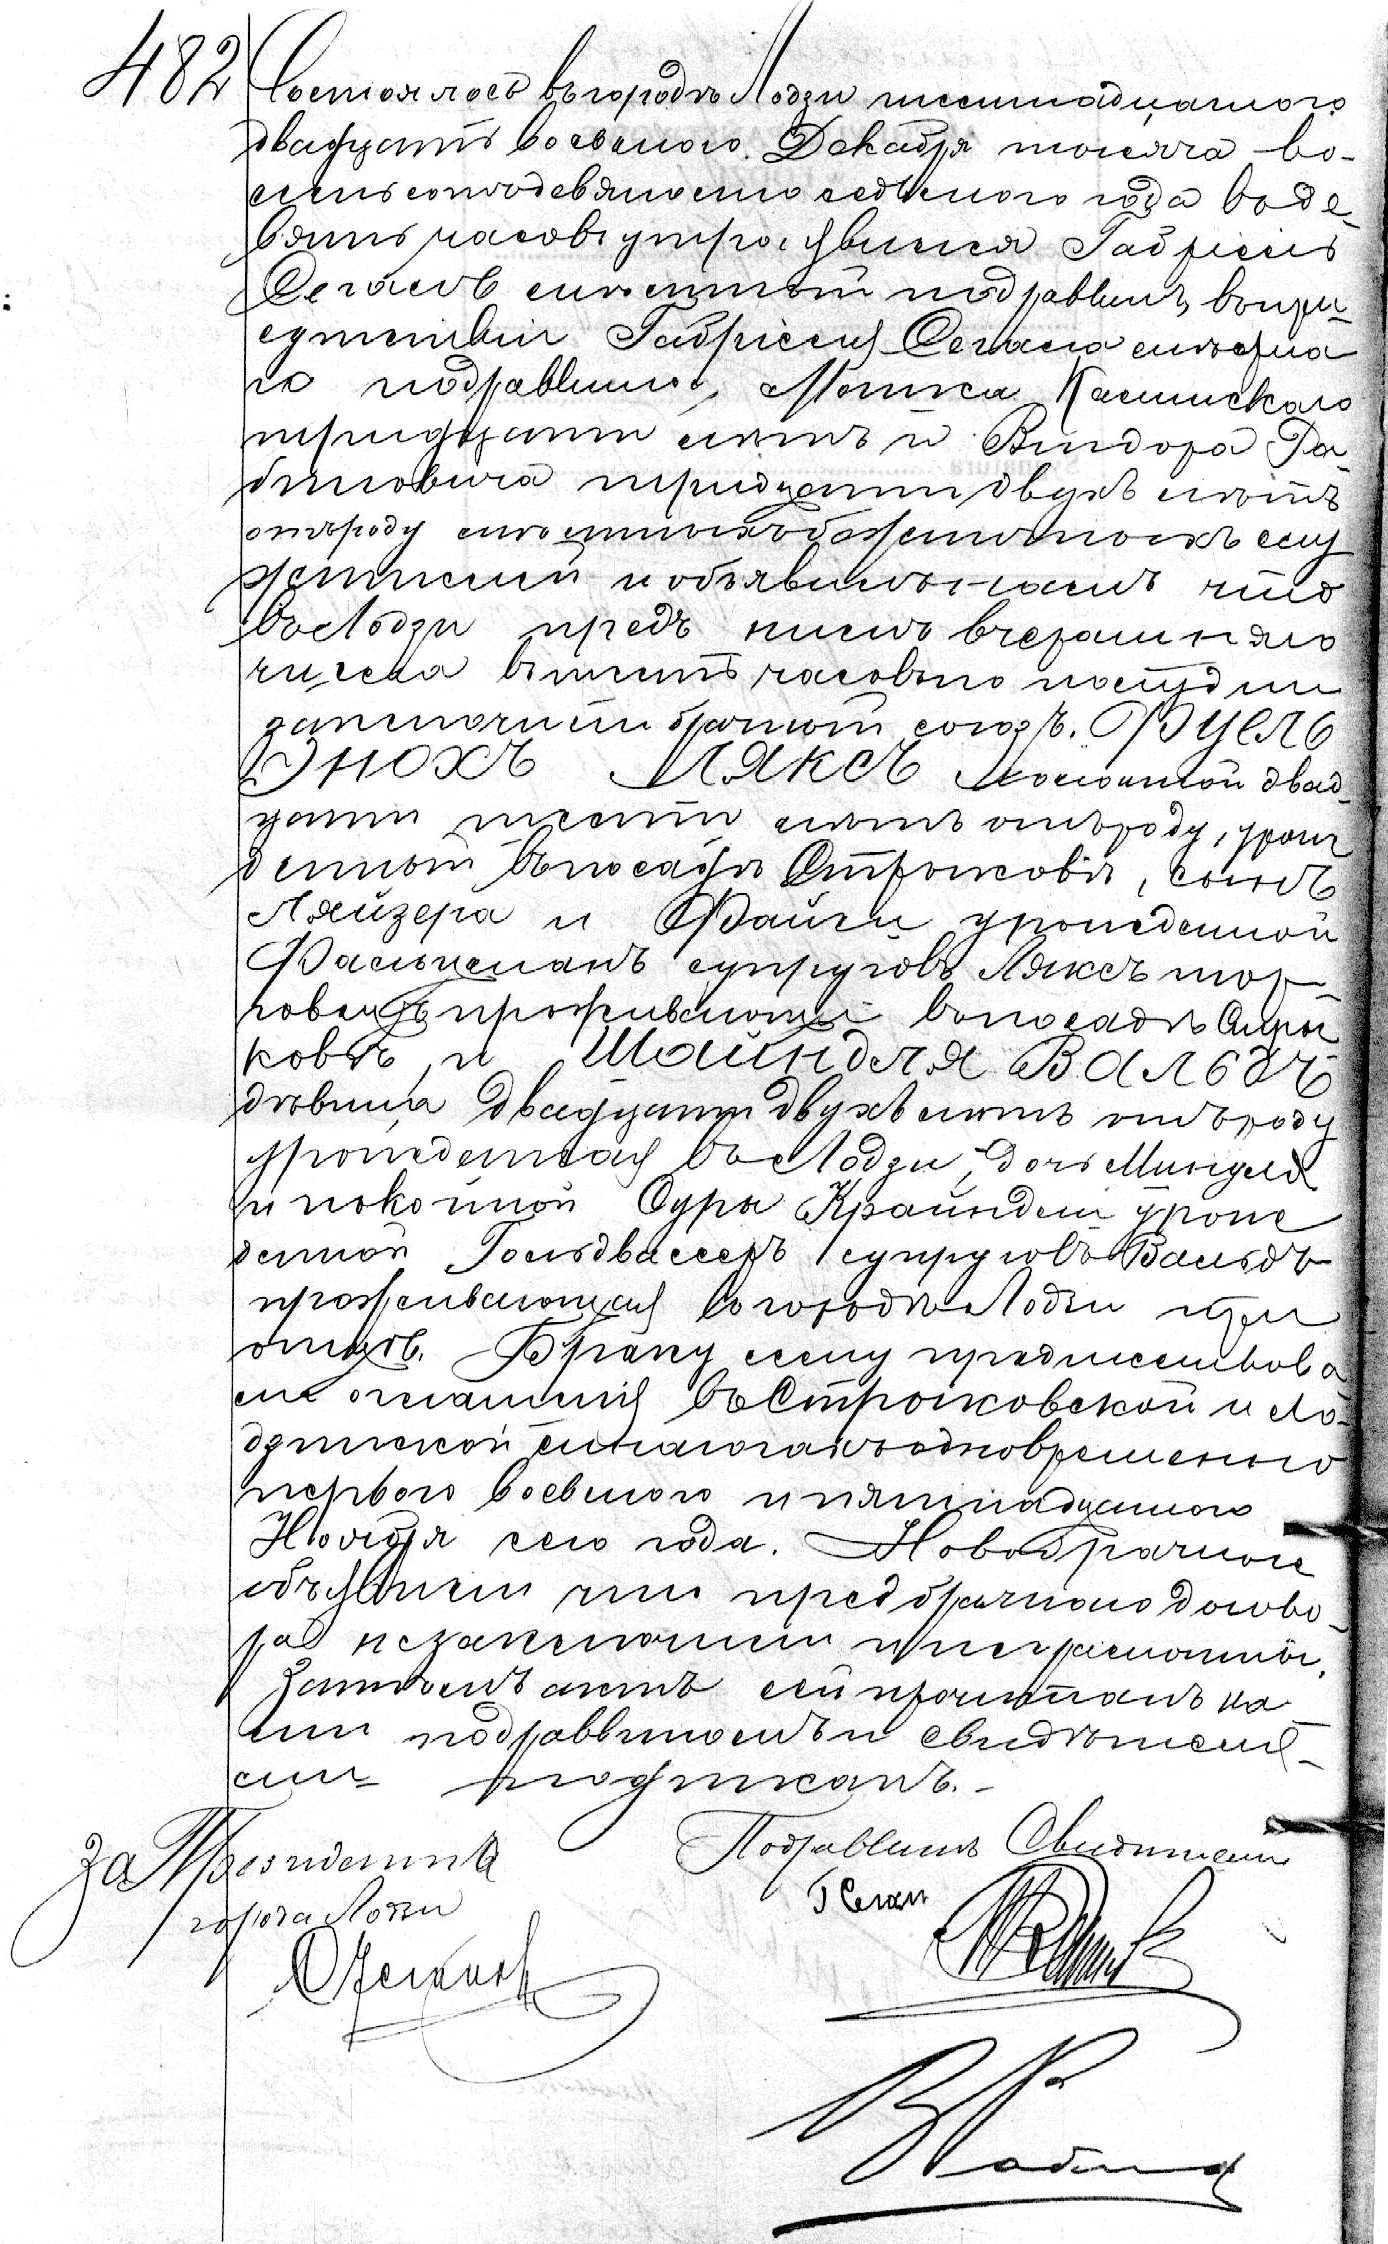 482 Состоялось въ городѣ Лодзи шестнадцатого
двадцать восьмого Декабря тысяча во-
семьсотъ девяносто седьмого года въ де-
вять часовъ утра, явился Габріель
Сегалъ мѣстный подраввинъ, въ при-
сутствіи Габріеля Сегала мѣстна
го подраввина, Мошка Каминскаго
тридцати лѣтъ и Виндора Ра-
биновича тридцати двухъ лѣтъ
отъ роду мѣстныхъ божничныхъ слу
жителей и объявилъ намъ что
въ Лодзи предъ нимъ вчерашняго
числа въ шесть часовъ по полудни
заключили брачный союзъ. Фуель
Энохъ Ляксъ холостой двад-
цати шести лѣтъ отъ роду, урож
денный въ посадѣ Стрыковѣ, сынъ
Ляйзера и Файги урожденной
Фальцманъ супруговъ Ляксъ тор-
говецъ проживающій въ посадѣ Стры
ковѣ, и Шайндля Вальдъ
дѣвица двадцати двухъ лѣтъ отъ роду
урожденная въ Лодзи, дочь Минделя
и покойной Суры Крайндли урож
денной Гольдвассеръ супруговъ Вальдъ
проживающая въ городѣ Лодзи при
отцѣ. Браку сему предшествова
ли оглашенія въ Стрыковской и Ло-
дзинской синагогахъ одновременно
первого восьмого и пятнадцатого
Ноября сего года. Новобрачные
объявили что предбрачного догово-
ра не заключили и неграмотны.
Затѣмъ актъ сей прочитанъ на
ми подраввиномъ и свидѣтеля-
ми подписанъ.-
За Президента
города Лодзи
Подраввинъ Свидѣтели
Г Сегалъ